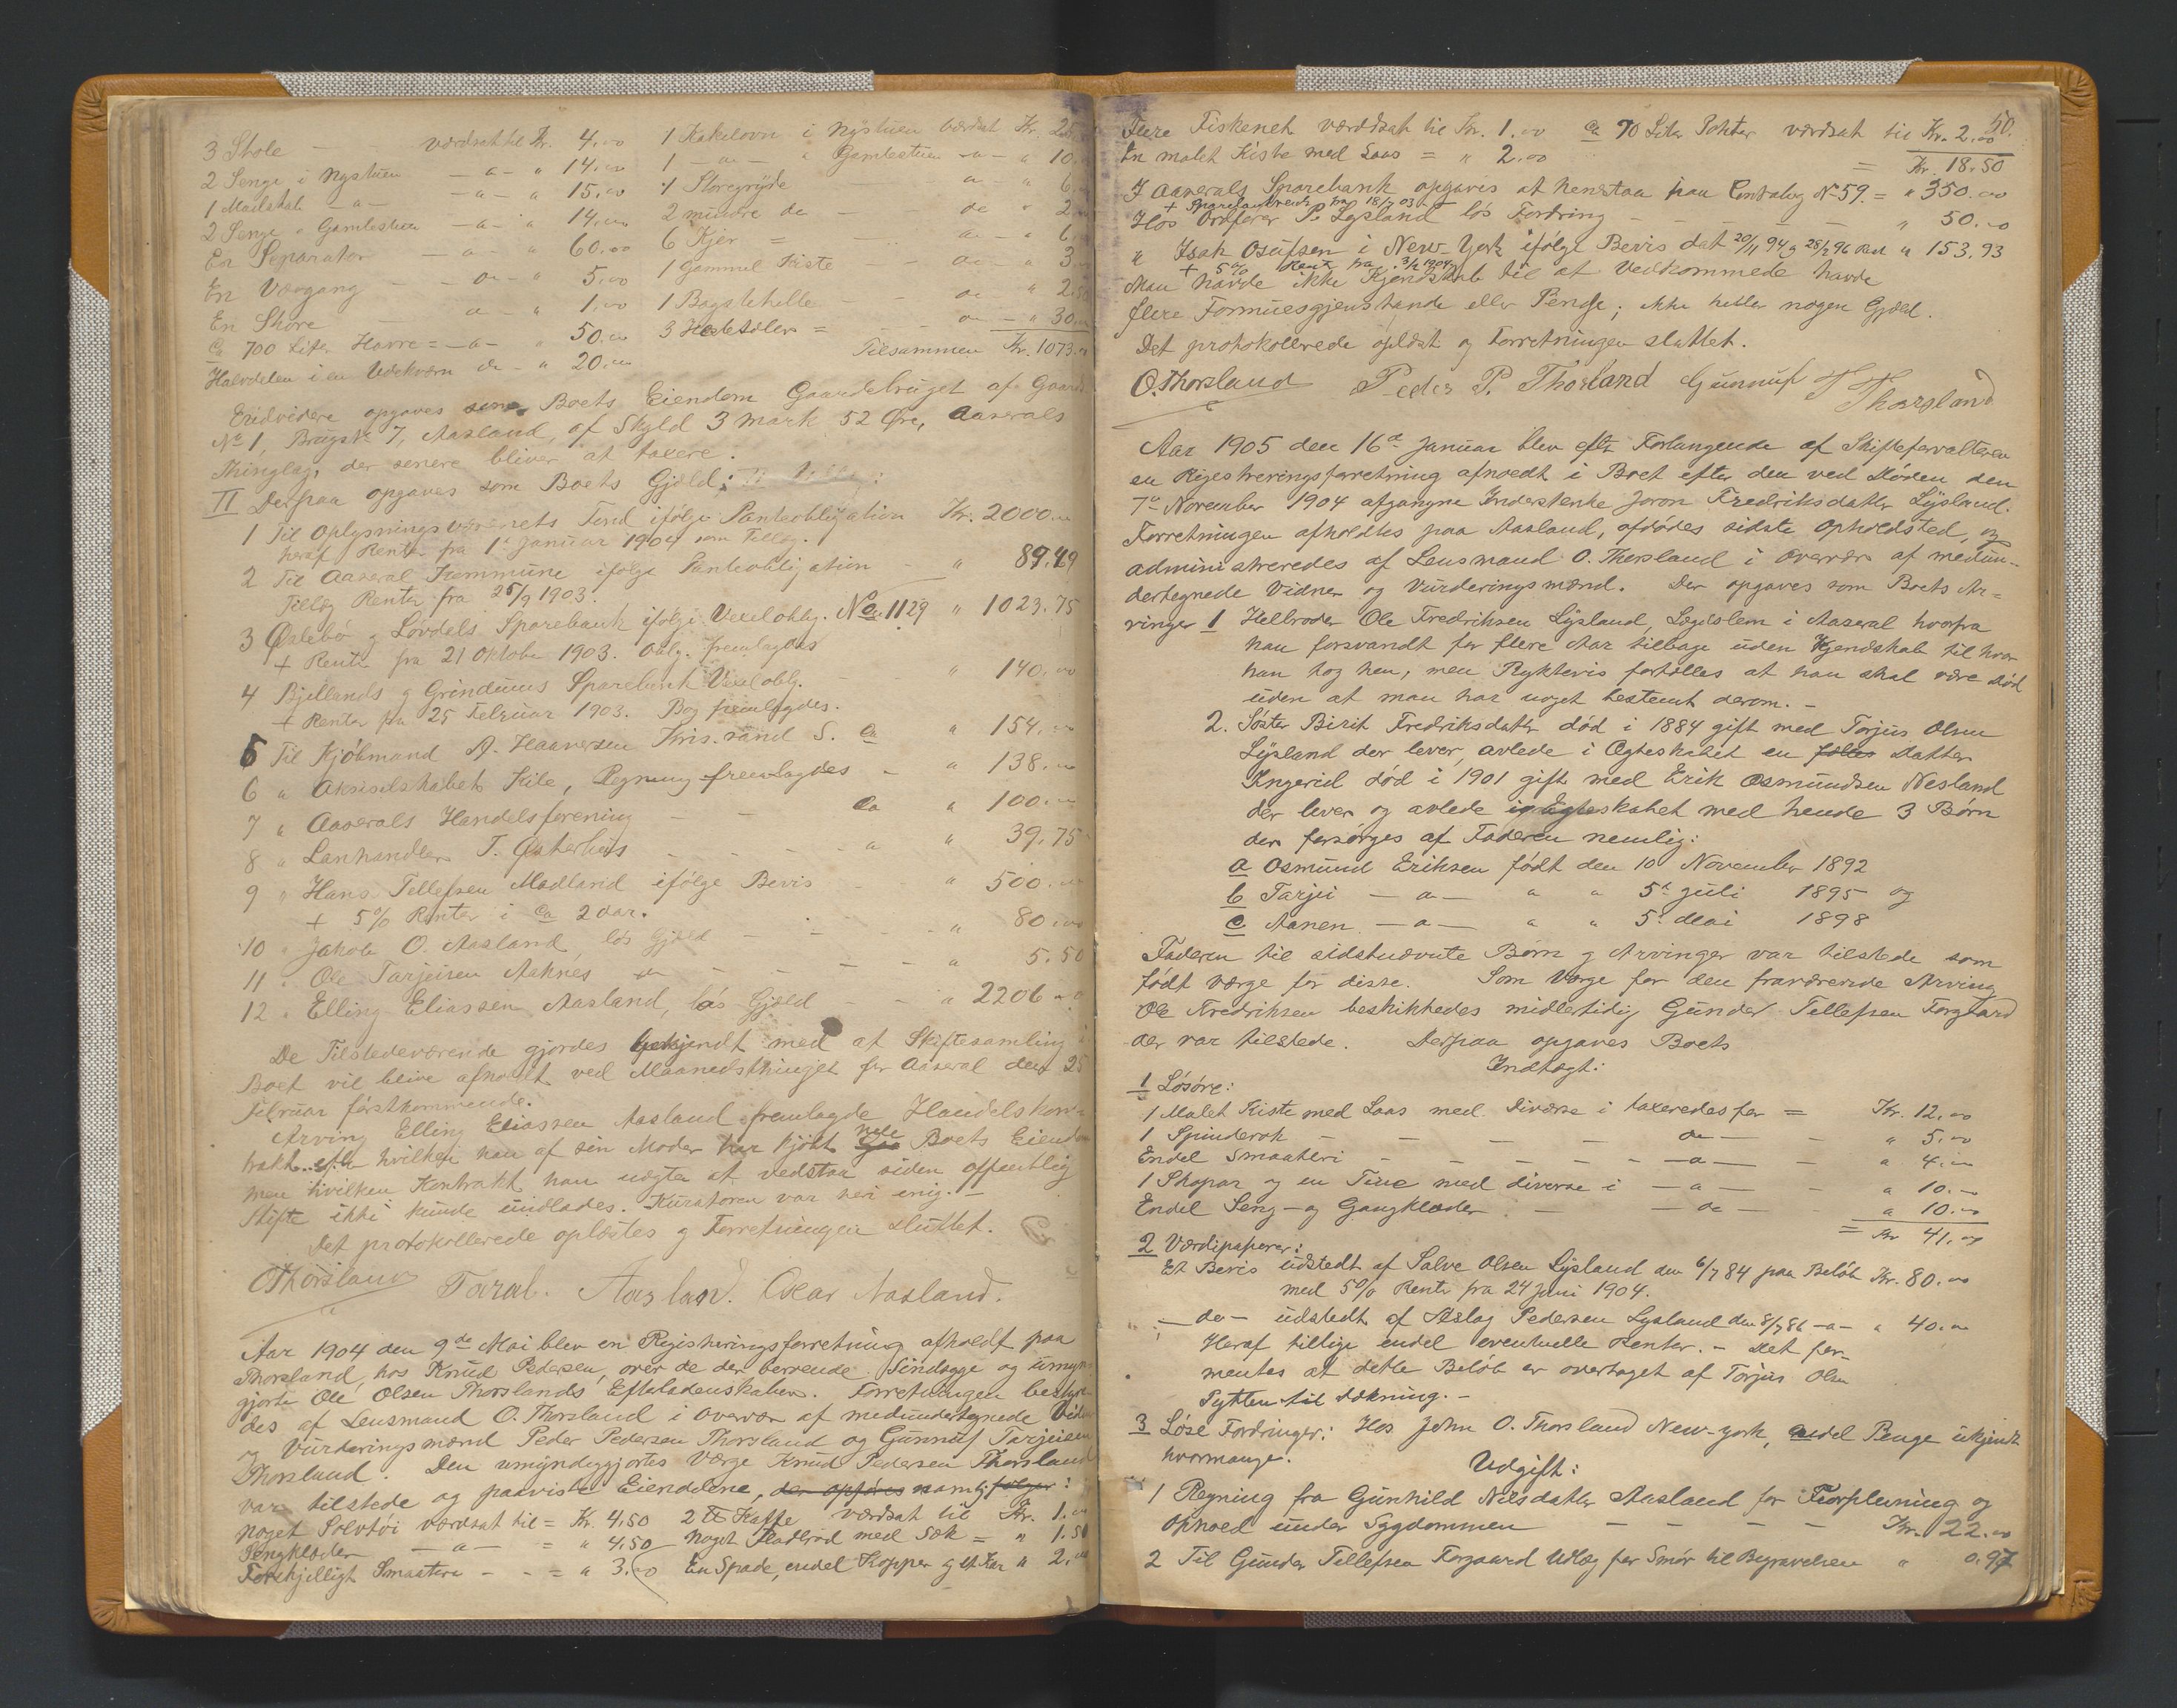 3 Stole — værdsat til Kr. 4.00 1 Kakelovn i Nystuen værdsat Kr. 25
2 Senge i Nystuen — a — " 14.00 1 — a — " Gamlestuen — a — " 10.
1 Madskab — a — — a — " 15.00 1 Storegryde — a — " 6.
2 Senge " Gamlestuen — a — " 14.00 2 mindre do — do " 2.
En Separator — a — " 60.00 6 Kjer = — a — " 6.
En Vævgang — do " 5.00 1 gammel Kiste — do — " 3
En Skore — a — " 1.00 1 Bagstehelle — do " 2.50
Ca 700 Liter Havre = — a — " 50.00 3 Hesteseler = — do — " 30.00
Halvdelen i en Udekværn do — " 20.00 Tilsammen Kr. 1073.
Endvidere opgaves som Boets Eiendom Gaardebruget af Gaards
No 1, Brugsnr 7, Aasland, af Skyld 3 Mark 52 Øre, Aaserals
Thinglag, der senere bliver at taxere.
II Derpaa opgaves som Boets Gjæld:
1 Til Oplysningsvæsenets Fond ifølge Panteobligation Kr. 2000.00
heraf Renter fra 1ste Januar 1904 som Tillæg.
2 Til Aaseral Kommune ifølge Panteobligation — " 89.49
Tillæg Renter fra 25/9 1903.
3 Øxlebø & Løvdels Sparebank ifølge Vexeloblig. No 1129 " 1023.75
+ Renter fra 21 Oktober 1903. Oblg. fremlagdes
4 Bjellands & Grindums Sparebank Vexeloblg. — " 140.00
+ Renter fra 25 Februar 1903. Bog fremlagdes.
5 Til Kjöbmand A. Haaversen Kris.sand S. Ca " 154.00
6 " Aktieselskabet Kile, Regning fremlagdes — " 138.00
7 " Aaserals Handelsforening — — Ca " 100.00
8 " Lanhandler T. Østerhus — — — a " 39.75
9 " Hans Tellefsen Madland ifølge Bevis — — " 500.00
+ 5% Renter i Ca 2 Aar.
10 " Jakob O. Aasland, løs Gjæld — — — " 80.00
11 " Ole Tarjeisen Aaknes do — — — " 5.50
12 " Elling Eliassen Aasland, løs Gjæld — — " 2206.00
De Tilstedeværende gjordes bekjendt med at Skiftesamling i
Boet vil blive afholdt ved Maanedsthinget for Aaseral den 25
Februar førstkommende.
Arving Elling Eliassen Aasland fremlagde Handelskon-
trakt efter hvilken han af sin Moder har kjöbt hele Boets Eiendom
men hvilken Kontrakt han nægter at vedstaa siden offentlig
Skifte ikke kunde undlades. Kuratoren var heri enig. —
Det protokollerede oplæstes og Forretningen sluttet.
O Thorsland Taral. Aasland. Olav Aasland.
Aar 1904 den 9de Mai blev en Registreringsforretning afholdt paa
Thorsland, hos Knud Pedersen, over de der beroende Sindssyge og umyn-
gjorte Ole Olsen Thorslands Efterladenskaber. Forretningen besty-
des af Lensmand O. Thorsland i Overvær af medundertegnede Vidner
og Vurderingsmænd Peder Pedersen Thorsland og Gunnuf Tarjeisen
Thorsland. Den umyndiggjortes Værge Knud Pedersen Thorsland
var tilstede og paaviste Eiendelene, der opføres namlig følger:
Noget Sølvtöi værdsat til = Kr. 4.50 2 ℔ Kaffe værdsat til Kr. 1.00
Sengklæder — a — = " 4.50 Noget Fladbrød med Sæk = " 1.50
Forskjelligt Smaatteri — — = " 3.00 En Spade, endel Kopper & et Kar " 2.00
50.
Flere Fiskenet værdsat til Kr. 1.00 Ca 70 Liter Poteter værdsat til Kr. 2.00
En malet Kiste med Laas = " 2.00 = Kr. 18.50
I Aaserals Sparebank opgaves at henstaa paa Contrabog No 59. = " 350.00
+ Sparebankrente fra 18/7 03
Hos Ordfører P. Lysland løs Fordring — — — " 50.00
" Isak Osufsen i New York ifølge Bevis dat 20/11 94 & 28/2 96 Rest " 153.93
+ 5% Rent fra 3/2 1904
Man havde ikke Kjendskab til at Vedkommende havde
flere Formuesgjenstande eller Penge; ikke heller nogen Gjæld.
Det protokollerede oplæst og Forretningen sluttet.
O. Thorsland Peder P. Thorsland Gunnuf T Thorsland
Aar 1905 den 16de Januar blev efter Forlangende af Skifteforvalteren
en Rigestreringsforretning afholdt i Boet efter den ved Døden den
7de November 1904 afgangne Inderstenke Joron Fredriksdatter Lysland.
Forretningen afholdtes paa Aasland, afdødes sidste Opholdsted, og
administreredes af Lensmand O. Thorsland i Overvær af medun-
dertegnede Vidner og Vurderingsmænd. Der opgaves som Boets Ar-
vinger 1 Helbroder Ole Fredriksen Lysland, Lægdslem i Aaseral hvorfra
han forsvandt for flere Aar tilbage uden Kjendskab til hvor
han tog hen, men Rykteris fortelles at han skal være død
uden at man har noget bestemt derom. —
2. Søster Birit Fredriksdatter død i 1884 gift med Torjus Olsen
Lysland der lever, avlede i Ægteskabet en fælles Datter
Ingerid død i 1901 gift med Erik Osmundsen Nesland
der lever og avlede i Ægteskabet med hende 3 Børn
der forsørges af Faderen nemlig:
a Osmund Eriksen født den 10 November 1892
b Tarjei — a — " " 5te Juli 1895 og
c Aanen — a — " " 5te Mai 1898
Faderen til sidstnævnte Børn & Arvinger var tilstede som
født Værge for disse. Som Værge for den fraværende Arving
Ole Fredriksen beskikkedes midlertidig Gunder Tellefsen Forgaard
der var tilstede. Derpaa opgaves Boets
Indtægt:
1 Løsøre:
1 Malet Kiste med Laas med Diverse i taxeredes for = Kr. 12.00
1 Spinderok — — — — do — — " 5.00
Endel Smaatteri — — — — — a — — " 4.00
1 Skopar og en Tine med diverse i — a — — " 10.00
Endel Seng- og Gangklæder — — do — " 10.00
= Kr 41.00
2 Værdipapirer:
Et Bevis udstedt af Salve Olsen Lysland den 6/7 84 paa Beløb Kr. 80.00
med 5% Rente fra 24 Juni 1904.
— do — udstedt af Aslag Pedersen Lysland den 8/7 86 — a — " 40.00
Heraf tillige endel eventuelle Renter. — Det for-
mentes at dette Beløb er overtaget af Torjus Olsen
Tytten til Dækning. —
3 Løse Fordringer: Hos John O. Thorsland New-york, endel Penge ukjendt
hvormange.
Udgift:
1 Regning fra Gunhild Nilsdatter Aasland for Forpleining og
Ophold under Sygdommen — — — — Kr. 22.00
2 Til Gunder Tellefsen Forgaard Udlæg for Smør til Begravelsen " 0.97